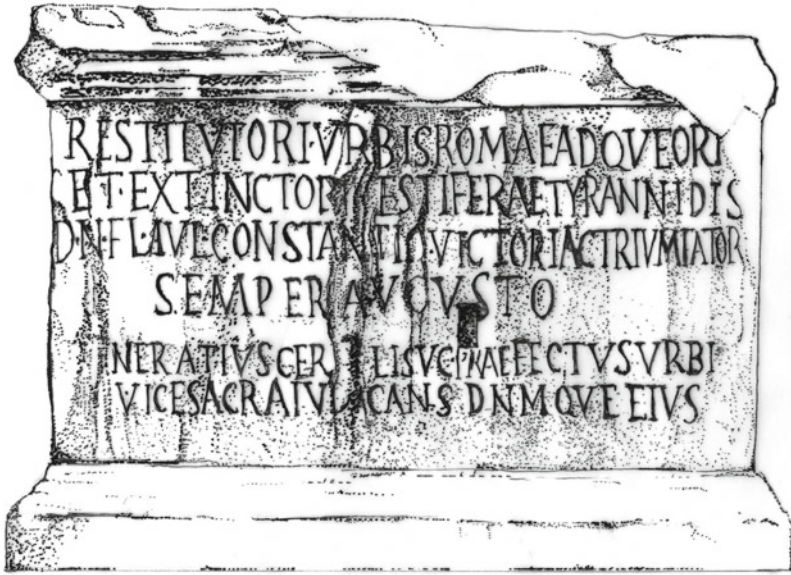 RESTITVTORI·VRBIS ROMAE ADQVE ORI
ET·EXTINCTOR ESTIFERAE TYRANNIDIS
D·N·FL·IVL·CONSTANTIO·VICTORI AC TRIVMFATOR
SEMPER AVGVSTO
NERATIVS CER LIS VC·PRAEFECTVS VRBI
VICE SACRA IVD CANS D N M QVE EIVS